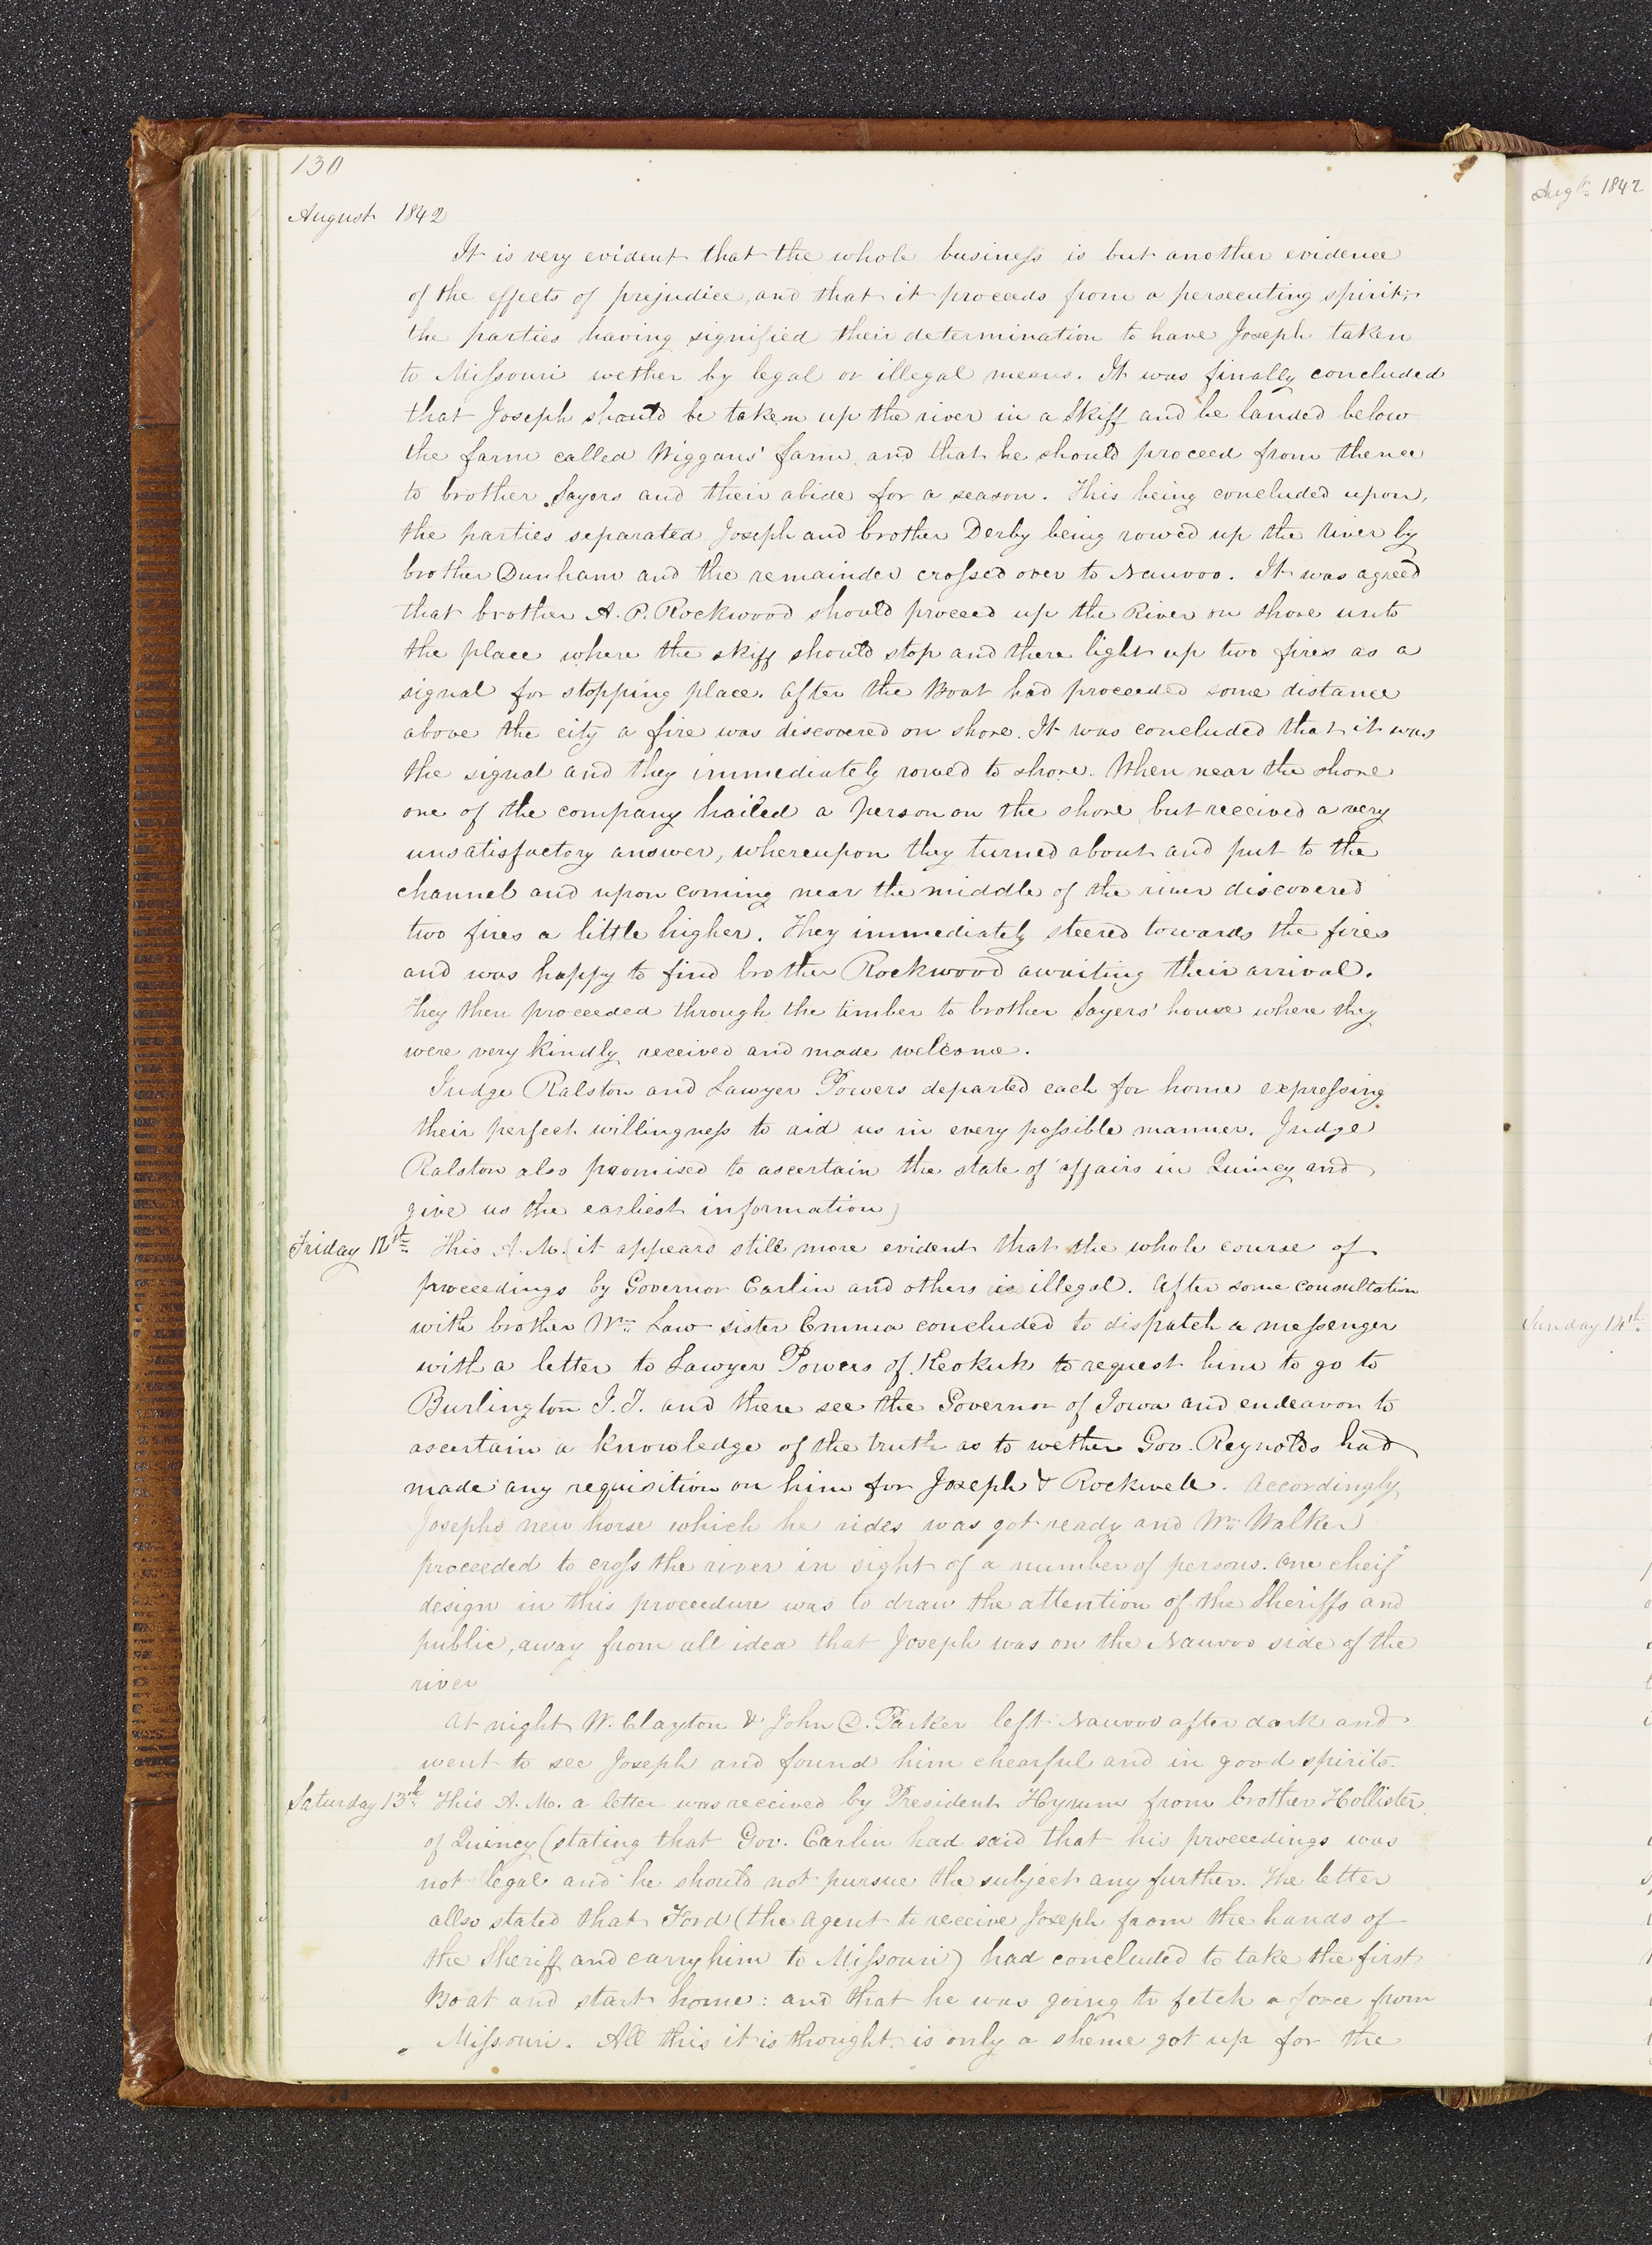 130
August 1842
It is very evident that the whole business is but another evidence
of the effects of prejudice, and that it proceeds from a persecuting spirit;
the parties having signified their determination to have Joseph taken
to Missouri wether by legal or illegal means. It was finally concluded
that Joseph should be taken up the river in a Skiff and be landed below
the farm called Wiggans' farm, and that he should proceed from thence
to brother Sayers and their abide for a season. This being concluded upon,
the parties separated Joseph and brother Derby being rowed up the river by
brother Dunham and the remainder crossed over to Nauvoo. It was agreed
that brother A. P. Rockwood should proceed up the River on shore unto
the place where the skiff should stop and there light up two fires as a
signal for stopping place. After the Boat had proceeded some distance
above the city a fire was discovered on shore. It was concluded that it was
the signal and they immediately rowed to shore. When near the shore
one of the company hailed a person on the shore but received a very
unsatisfactory answer, whereupon they turned about and put to the
channel and upon coming near the middle of the river discovered
two fires a little higher. They immediately steered towards the fires
and was happy to find brother Rockwood awaiting their arrival.
They then proceeded through the timber to brother Sayers' house where they
were very kindly received and made welcome.
Judge Ralston and Lawyer Powers departed each for home expressing
their perfect willingness to aid us in every possible manner. Judge
Ralston also promised to ascertain the state of affairs in Quincy and
give us the earliest information)
Friday 12th This A.M. (it appears still more evident that the whole course of
proceedings by Governor Carlin and others is illegal. After some consultation
with brother Wm Law sister Emma concluded to dispatch a messenger
with a letter to Lawyer Powers of Keokuk to request him to go to
Burlington I.T. and there see the Governor of Iowa and endeavor to
ascertain a knowledge of the truth as to wether Gov. Reynolds had
made any requisition on him for Joseph & Rockwell. Accordingly
Josephs new horse which he rides was got ready and Wm Walker
proceeded to cross the river in sight of a number of persons. One cheif
design in this proceedure was to draw the attention of the Sheriffs and
public, away from all idea that Joseph was on the Nauvoo side of the
river
At night W. Clayton & John D. Parker left Nauvoo after dark and
went to see Joseph and found him chearful and in good spirits.
Saturday 13th This A.M. a letter was received by President Hyrum from brother Hollister
of Quincy (stating that Gov. Carlin had said that his proceedings was
not legal and he should not pursue the subject any further. The letter
allso stated that Ford (the agent to receive Joseph from the hands of
the Sheriff and carry him to Missouri) had concluded to take the first
Boat and start home: and that he was going to fetch a force from
Missouri. All this it is thought is only a sheme got up for the
Augt. 1842
Sunday 14th